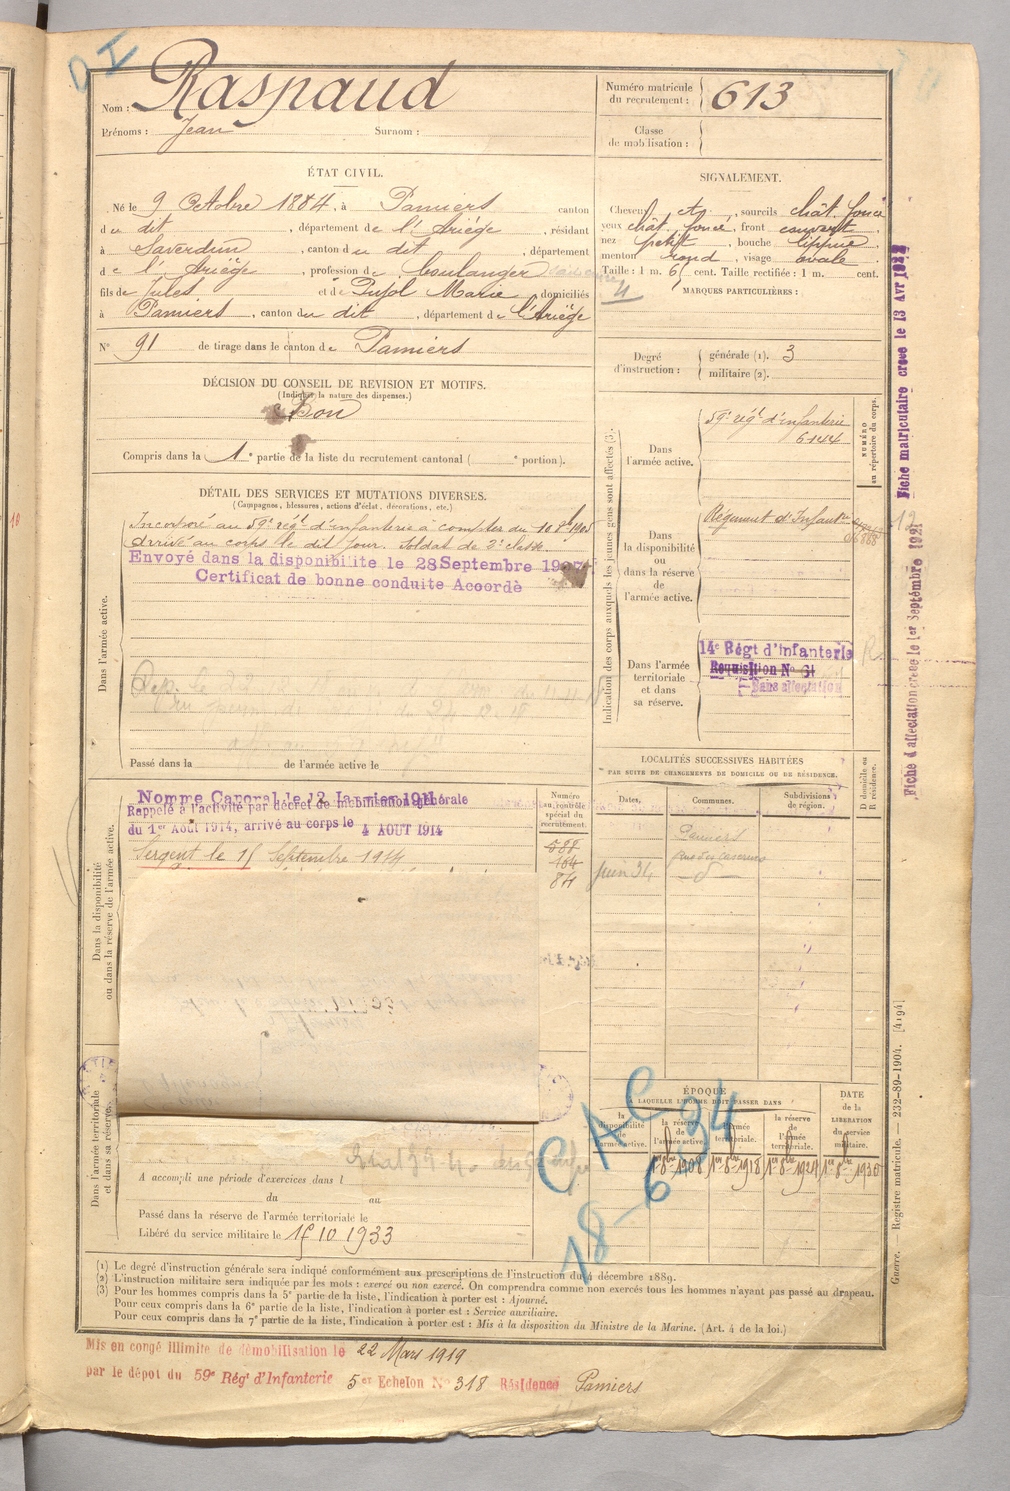 Nom : Raspaud
Prénoms : Jean Surnom :
Numéro matricule
du recrutement : 613
Classe
de mobilisation :
ÉTAT CIVIL.
Né le 9 Octobre 1884, à Pamiers canton
du dit, département de l'Ariège, résidant
à Saverdun, canton du dit, département
de l'Ariège, profession de boulanger
fils de Jules et de Pujol Marie domiciliés
à Pamiers, canton du dit, département de l'Ariège
N° 91 de tirage dans le canton de Pamiers
SIGNALEMENT.
Cheveux chât., sourcils chât. foncé
yeux chât. foncé, front couvert,
nez petit, bouche lippue,
menton rond, visage ovale
Taille : 1 m. 61 cent. Taille rectifiée : 1 m. cent.
MARQUES PARTICULIÈRES :
Degré
d'instruction :
générale (1). 3
militaire (2).
DÉCISION DU CONSEIL DE REVISION ET MOTIFS.
(Indiquer la nature des dispenses.)
Bon
Compris dans la 1e partie de la liste du recrutement cantonal ( e portion).
DÉTAIL DES SERVICES ET MUTATIONS DIVERSES.
(Campagnes, blessures, actions d'éclat, décorations, etc.)
Dans l'armée active.
Incorporé au 59e régt d'infanterie à compter du 10 8bre 1905
arrivé au corps le dit jour. Soldat de 2e classe
Envoyé dans la disponibilite le 28 Septembre 1907
Certificat de bonne conduite Accordè
Passé dans la de l'armée active le
Indication des corps auxquels les jeunes gens sont affectés (3).
Dans
l'armée active.
59e régt d'infanterie
6144
NUMÉRO
au répertoire du corps.
Dans
la disponibilité
ou
dans la réserve
de
l'armée active.
Régiment d'Infantie
Dans l'armée
territoriale
et dans
sa réserve.
14e Régt d'Infanterie
Requisition No 61
Sans affectation
Fiche matriculaire creée le 13 Avr 1922
Fiche d affectation creee le 1er Septembre 1921
LOCALITÉS SUCCESSIVES HABITÉES
PAR SUITE DE CHANGEMENTS DE DOMICILE OU DE RÉSIDENCE.
Dates. Communes. Subdivisions
de région.
D domicile ou
R résidence.
Pamiers
Juin 34 rue des casernes
D
Dans la disponibilité
ou dans la réserve de l'armée active.
Nomme Caporal le 12 Janvier 1911
Rappelé à l'activité par décret de mobilisation générale
du 1er Août 1914, arrivé au corps le 4 AOUT 1914
Sergent le 15 Septembre 1914
Numéro
au contrôle
spécial du
recrutement.
588
164
84
Dans l'armée territoriale
et dans sa réserve.
A accompli une période d'exercices dans l
du au
Passé dans la réserve de l'armée territoriale le
Libéré du service militaire le 15 10 1933
ÉPOQUE
A LAQUELLE L'HOMME DOIT PASSER DANS
la
disponibilité
de
l'armée active.
la réserve
de
l'armée active.
l'armée
territoriale.
la réserve
de
l'armée
territoriale.
DATE
de la
LIBÉRATION
du service
militaire.
1er 8bre 1908 1er 8bre 1918 1er 8bre 1924 1er 8bre 1930
CAC
18-6-34
(1) Le degré d'instruction générale sera indiqué conformément aux prescriptions de l'instruction du 4 décembre 1889.
(2) L'instruction militaire sera indiquée par les mots : exercé ou non exercé. On comprendra comme non exercés tous les hommes n'ayant pas passé au drapeau.
(3) Pour les hommes compris dans la 5e partie de la liste, l'indication à porter est : Ajourné.
Pour ceux compris dans la 6e partie de la liste, l'indication à porter est : Service auxiliaire.
Pour ceux compris dans la 7e partie de la liste, l'indication à porter est : Mis à la disposition du Ministre de la Marine. (Art. 4 de la loi.)
Guerre. — Registre matricule. — 232-89-1904. [4194]
Mis en congé illimite de démobilisation le 22 Mars 1919
par le dépot du 59e Régt d'Infanterie 5e Echelon No 318 Résidence Pamiers